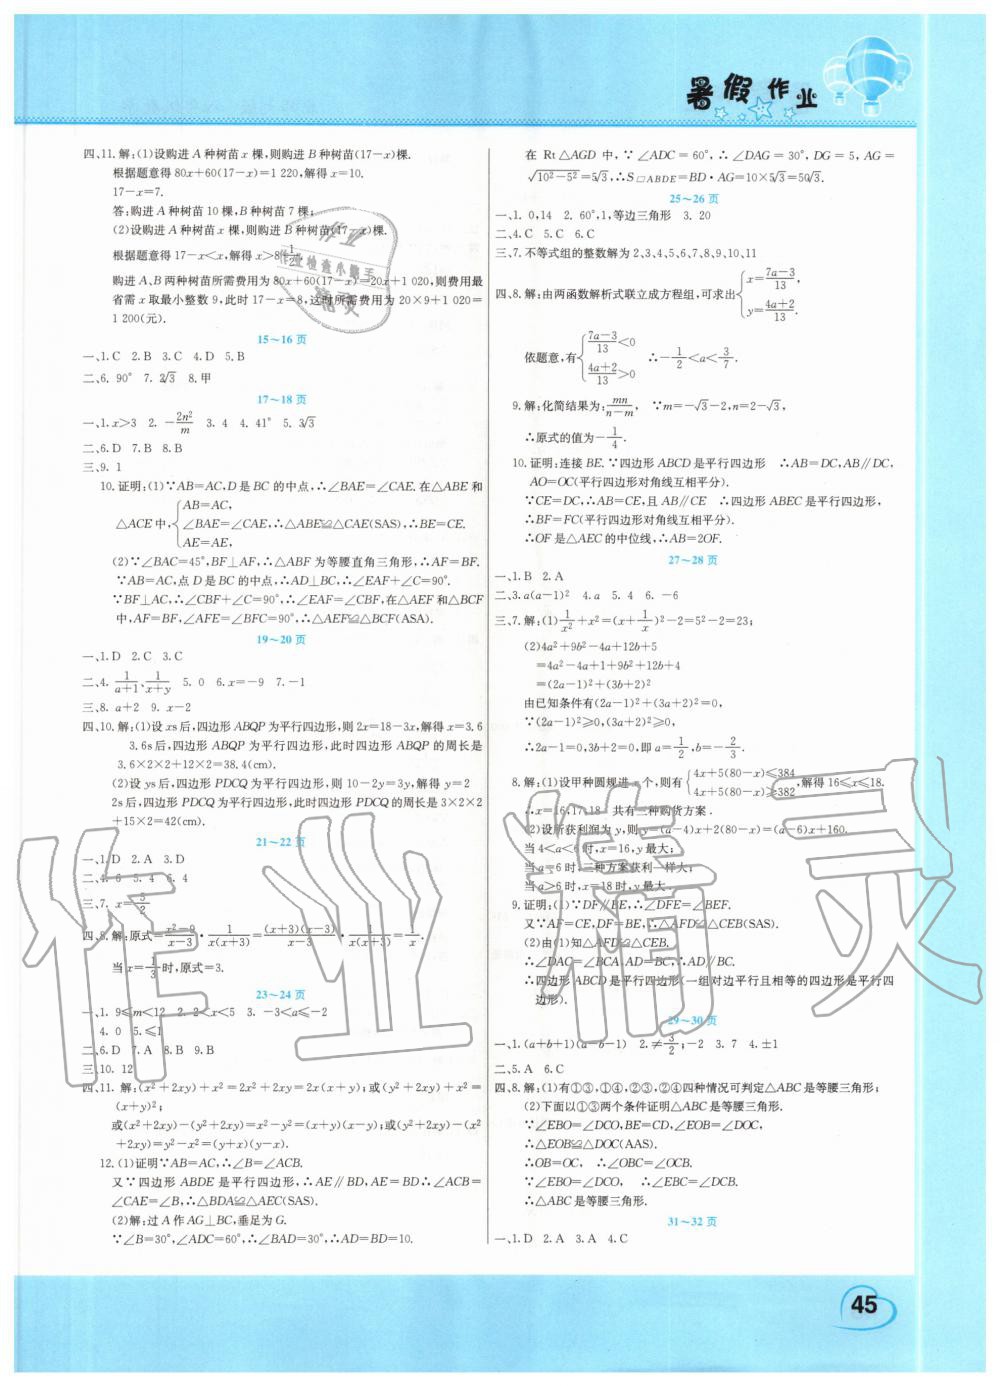 暑假作业
四、11.解:(1)设购进A种树苗x棵,则购进B种树苗(17-x)棵.
根据题意得80x+60(17-x)=1 220,解得x=10.
17-x=7.
答:购进A种树苗10棵,B种树苗7棵;
(2)设购进A种树苗x棵,则购进B种树苗(17-x)棵.
根据题意得17-x<x,解得x>8+1/2,
购进A、B两种树苗所需费用为80x+60(17-x)=20x+1 020,则费用最
省需x取最小整数9,此时17-x=8,这时所需费用为20×9+1 020=
1 200(元).
15~16页
一、1.C 2.B 3.C 4.D 5.B
二、6. 90° 7. 2√3 8.甲
17~18页
一、1.x>3 2. -2n²/m 3. 4 4. 41° 5. 3√3
二、6.D 7.B 8.B
三、9. 1
10.证明:(1)∵AB=AC,D是BC的中点,∴∠BAE=∠CAE.在△ABE和
AB=AC,
△ACE中,∠BAE=∠CAE,∴△ABE≌△CAE(SAS),∴BE=CE.
AE=AE,
(2)∵∠BAC=45°,BF⊥AF,∴△ABF为等腰直角三角形,∴AF=BF.
∵AB=AC,点D是BC的中点,∴AD⊥BC,∴∠EAF+∠C=90°.
∵BF⊥AC,∴∠CBF+∠C=90°,∴∠EAF=∠CBF,在△AEF和△BCF
中,AF=BF,∠AFE=∠BFC=90°,∴△AEF≌△BCF(ASA).
19~20页
一、1.D 2.C 3.C
二、4. 1/(a+1)、1/(x+y) 5. 0 6.x=-9 7.-1
三、8. a+2 9. x-2
四、10.解:(1)设xs后,四边形ABQP为平行四边形,则2x=18-3x,解得x=3.6
3.6s后,四边形ABQP为平行四边形,此时四边形ABQP的周长是
3.6×2×2+12×2=38.4(cm).
(2)设ys后,四边形PDCQ为平行四边形,则10-2y=3y,解得y=2
2s后,四边形PDCQ为平行四边形,此时四边形PDCQ的周长是3×2×2
+15×2=42(cm).
21~22页
一、1.D 2.A 3.D
二、4. 6 5. 4 6. 4
三、7. x=5/2
四、8.解:原式=(x²-9)/(x-3)·1/(x(x+3))=(x+3)(x-3)/(x-3)·1/(x(x+3))=1/x.
当x=1/3时,原式=3.
23~24页
一、1. 9≤m<12 2. 2<x<5 3. -3<a≤-2
4. 0 5. ≤1
二、6.D 7.A 8.B 9.B
三、10. 12
四、11. 解:(x²+2xy)+x²=2x²+2xy=2x(x+y);或(y²+2xy)+x²=
(x+y)²;
或(x²+2xy)-(y²+2xy)=x²-y²=(x+y)(x-y);或(y²+2xy)-(x²
+2xy)=y²-x²=(y+x)(y-x).
12.(1)证明∵AB=AC,∴∠B=∠ACB.
又∵四边形ABDE是平行四边形,∴AE∥BD,AE=BD∴∠ACB=
∠CAE=∠B,∴△DBA≌△AEC(SAS).
(2)解:过A作AG⊥BC,垂足为G.
∵∠B=30°,∠ADC=60°,∴∠BAD=30°,∴AD=BD=10.
在Rt△AGD中,∵∠ADC=60°,∴∠DAG=30°,DG=5,AG=
√(10²-5²)=5√3,∴S□ABDE=BD·AG=10×5√3=50√3.
25~26页
一、1. 0,14 2. 60°,1,等边三角形 3. 20
二、4.C 5.C 6.C
三、7.不等式组的整数解为2,3,4,5,6,7,8,9,10,11
四、8.解:由两函数解析式联立成方程组,可求出 x=(7a-3)/13, y=(4a+2)/13.
依题意,有 (7a-3)/13<0 (4a+2)/13>0 ∴-1/2<a<3/7.
9.解:化简结果为:mn/(n-m), ∵m=-√3-2,n=2-√3,
∴原式的值为-1/4.
10.证明:连接BE.∵四边形ABCD是平行四边形 ∴AB=DC,AB∥DC,
AO=OC(平行四边形对角线互相平分).
∵CE=DC,∴AB=CE,且AB∥CE ∴四边形ABEC是平行四边形,
∴BF=FC(平行四边形对角线互相平分).
∴OF是△AEC的中位线,∴AB=2OF.
27~28页
一、1.B 2.A
二、3.a(a-1)² 4.a 5. 4 6. -6
三、7.解:(1)1/x²+x²=(x+1/x)²-2=5²-2=23;
(2)4a²+9b²-4a+12b+5
=4a²-4a+1+9b²+12b+4
=(2a-1)²+(3b+2)²
由已知条件有(2a-1)²+(3a+2)²=0,
∵(2a-1)²≥0,(3a+2)²≥0,
∴2a-1=0,3b+2=0,即a=1/2,b=-2/3.
8.解:(1)设甲种圆规进x个,则有 4x+5(80-x)≤384 4x+5(80-x)≥382,解得16≤x≤18.
∴x=16,17,18 共有三种购货方案.
(2)设所获利润为y,则y=(a-4)x+2(80-x)=(a-6)x+160.
当4<a<6时,x=16,y最大;
当a=6时,三种方案获利一样大;
当a>6时,x=18时,y最大.
9.证明:(1)∵DF∥BE,∴∠DFE=∠BEF.
又∵AF=CE,DF=BE,∴△AFD≌△CEB(SAS).
(2)由(1)知△AFD≌△CEB.
∴∠DAC=∠BCA,AD=BC,∴AD∥BC.
∴四边形ABCD是平行四边形(一组对边平行且相等的四边形是平行四
边形).
29~30页
一、1.(a+b+1)(a-b-1) 2.≠3/2;-2 3. 7 4. ±1
二、5.A 6.C
四、8.解:(1)有①③,①④,②③,②④四种情况可判定△ABC是等腰三角形;
(2)下面以①③两个条件证明△ABC是等腰三角形.
∵∠EBO=∠DCO,BE=CD,∠EOB=∠DOC,
∴△EOB≌△DOC(AAS).
∴OB=OC, ∴∠OBC=∠OCB.
∵∠EBO=∠DCO, ∴∠EBC=∠DCB.
∴△ABC是等腰三角形.
31~32页
一、1.D 2.A 3.A 4.C
45
作业精灵
作业
作业检查小助手
精灵